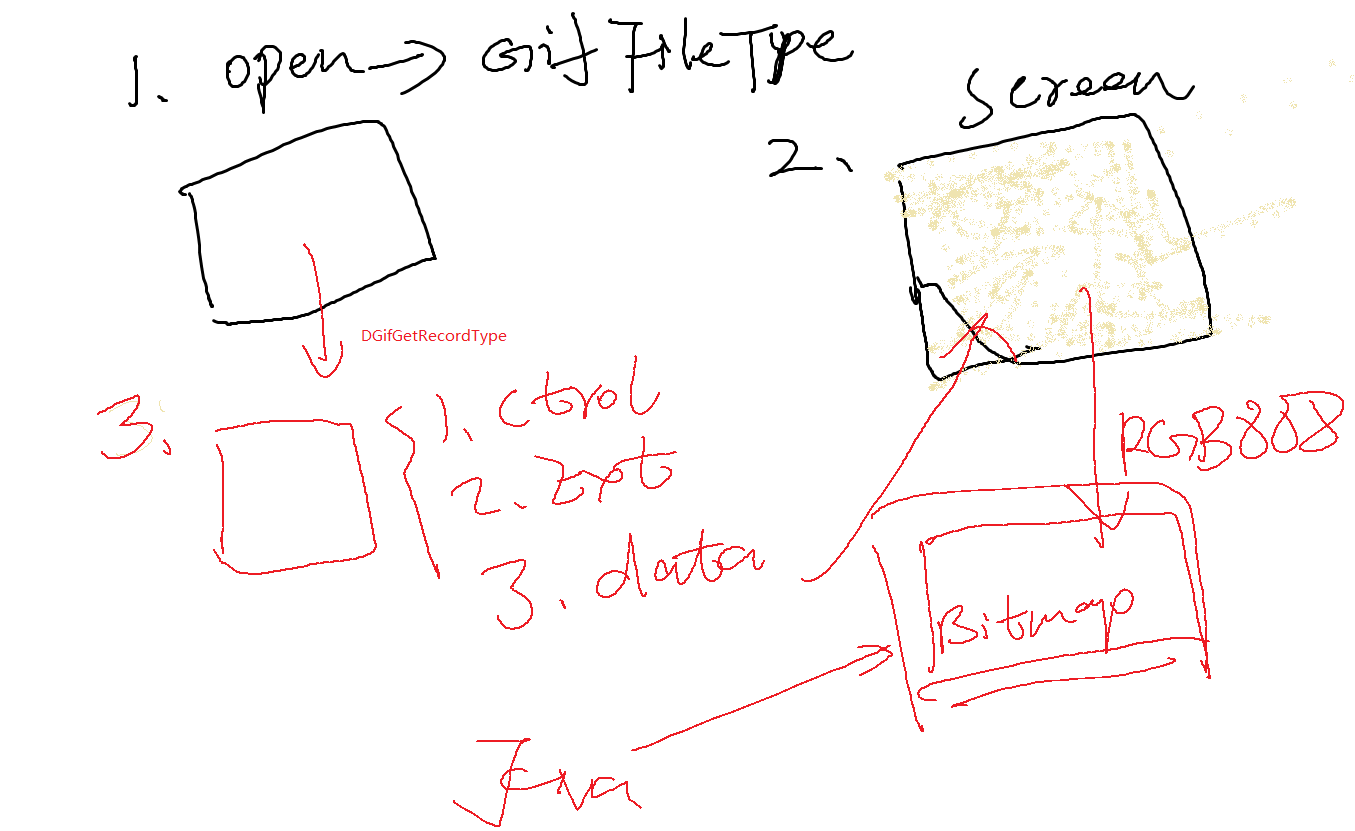 1. open → GifFileType
Screen
2.
DGifGetRecordType
3.
1. ctrol
2. Ext
3. data
RGB888
Bitmap
Java